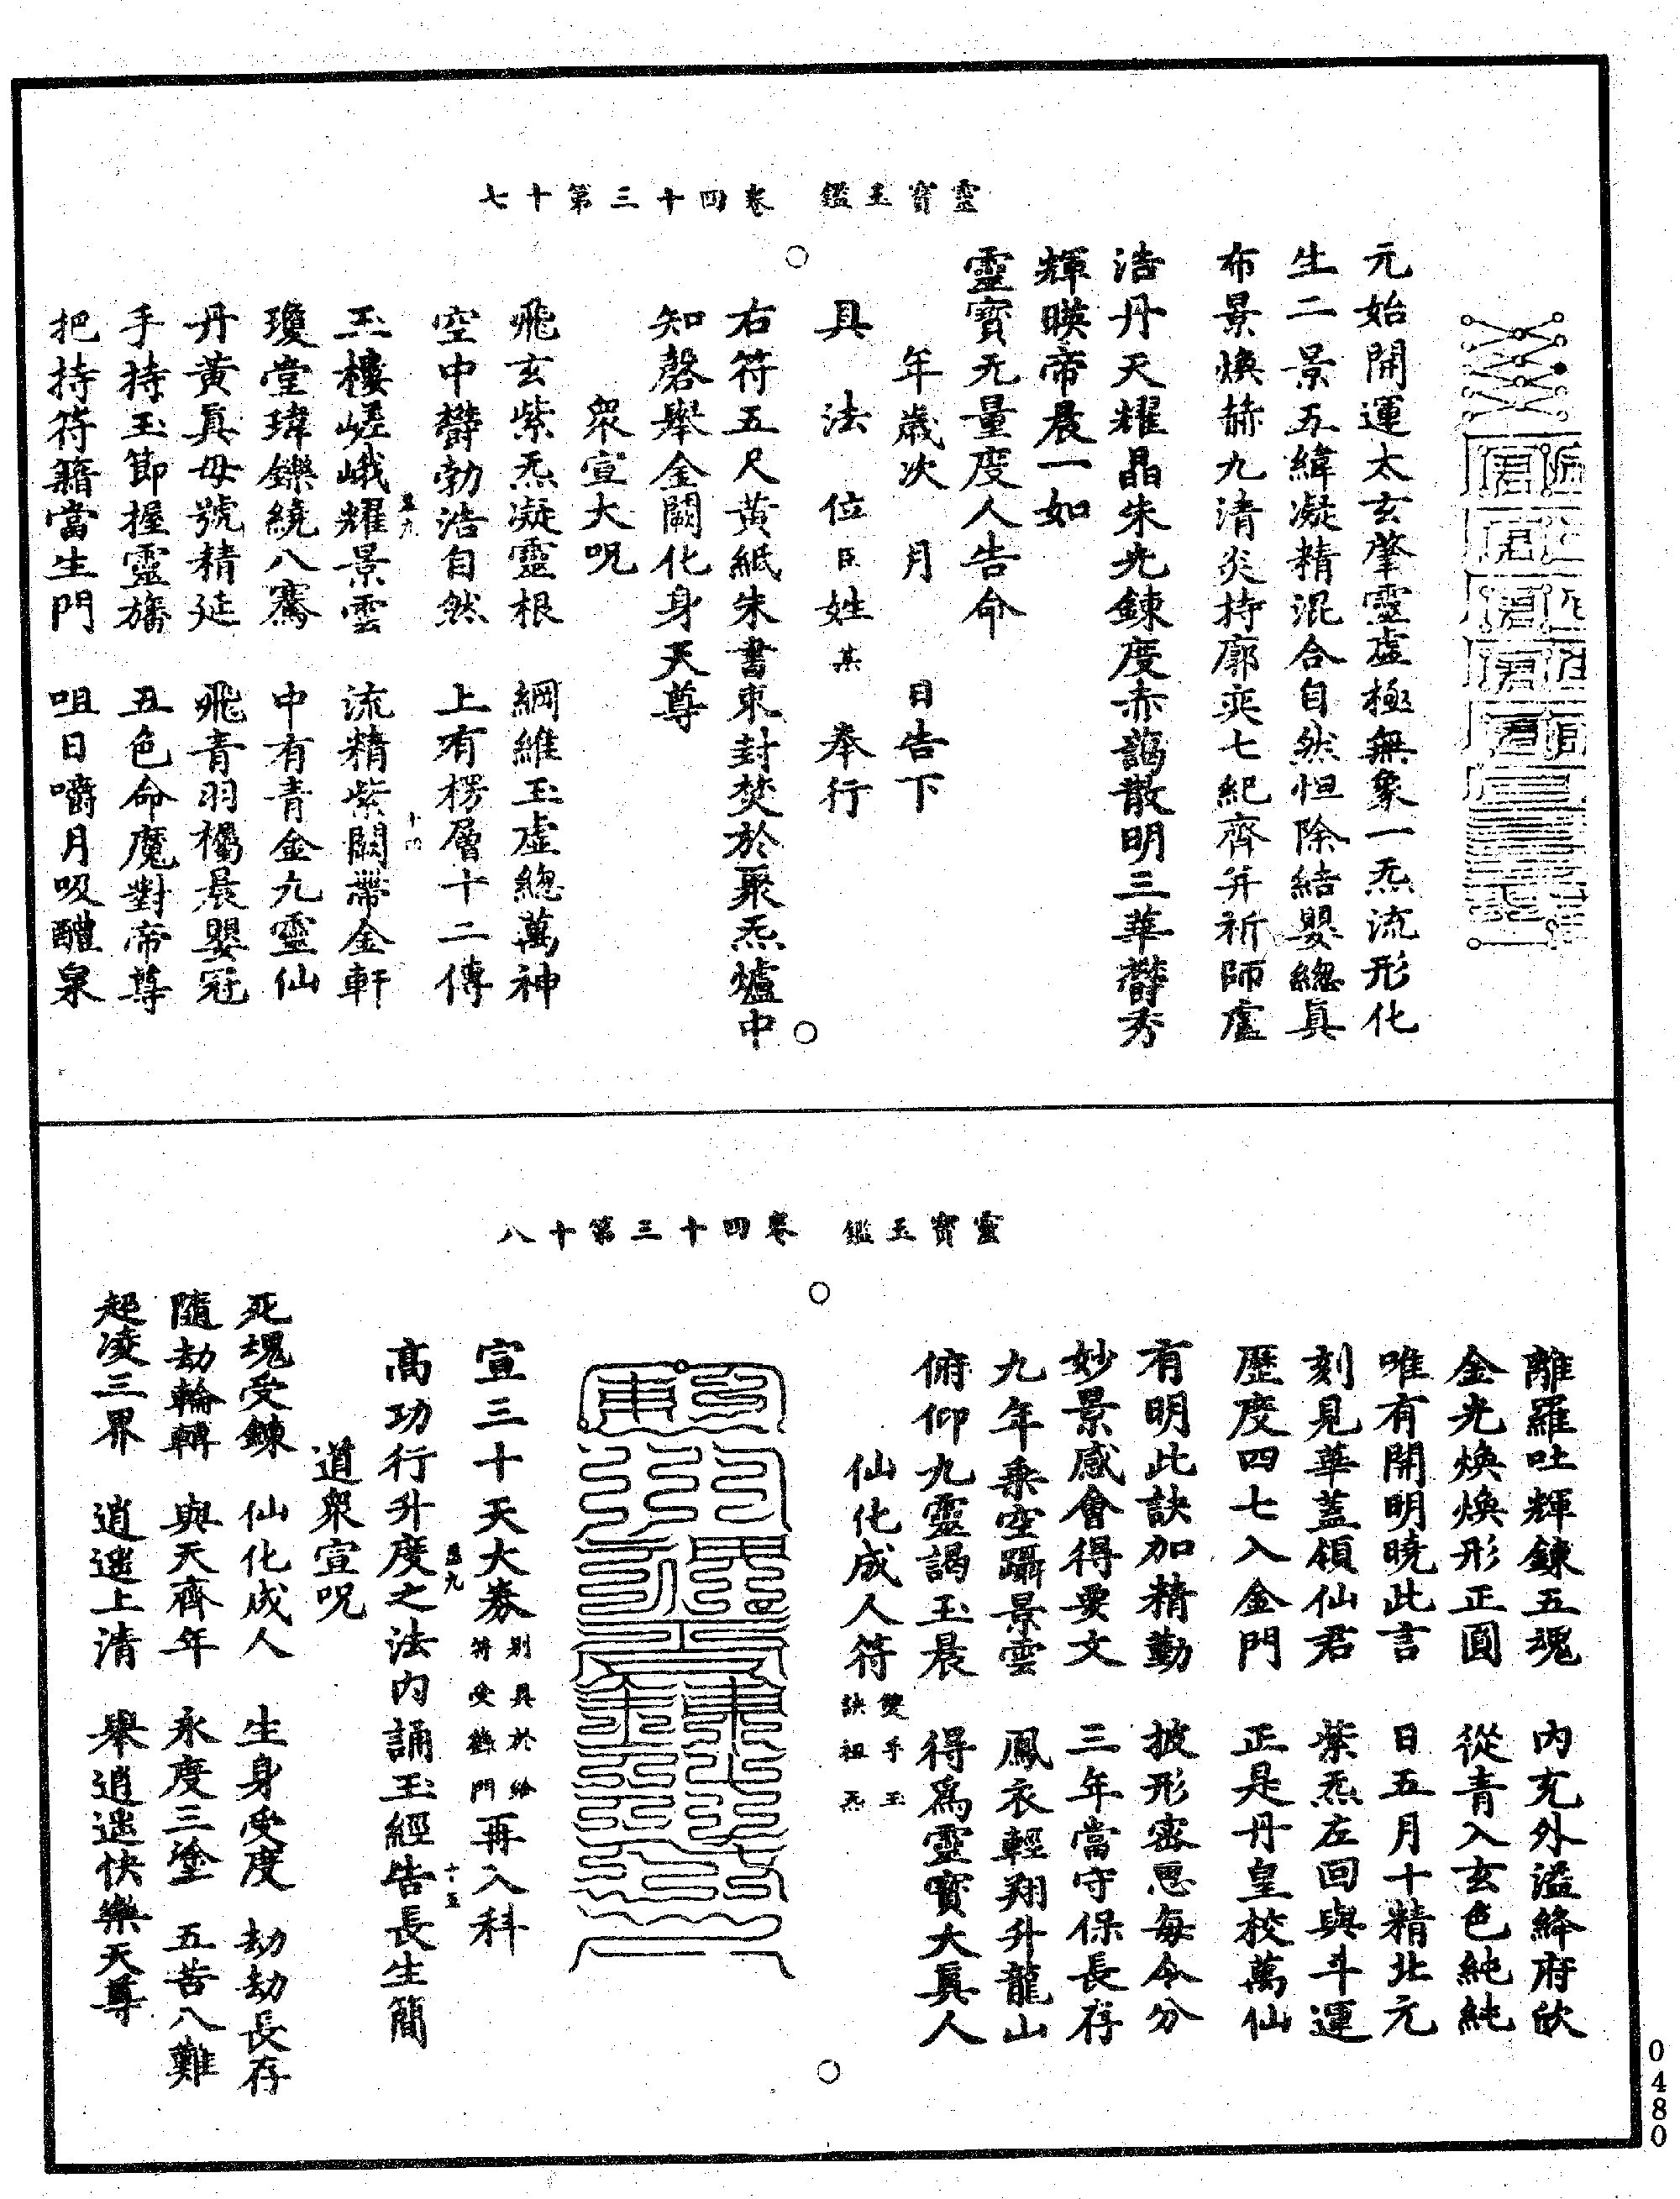 靈寶玉鑑　卷四十三第十七
元始開運太玄肇靈虛極無象一炁流形化
生二景五緯凝精混合自然怛除結嬰總真
布景煥赫九清炎持廓奕七紀齊并祈師虛
浩丹天耀晶朱光鍊度赤謁散明三華欝秀
輝暎帝晨一如
靈寶无量度人告命
年歲次　月　日告下
具　法　位臣姓某　奉行
右符五尺黃紙朱書東封焚於聚炁爐中
知磬舉金闕化身天尊
眾宣大呪
飛玄紫炁凝靈根　綱維玉虛總萬神
空中欝勃浩自然　上有楞層十二傳
玉樓嵯峨耀景雲　流精紫闕帶金軒
瓊堂瑋鑠繞八騫　中有青金九靈仙
丹黃真母號精延　飛青羽襡晨嬰冠
手持玉節握靈旛　五色命魔對帝尊
把持符籍當生門　咀日嚼月吸醴泉
十四
靈寶玉鑑　卷四十三第十八
離羅吐輝鍊五魂　內充外溢絳府欣
金光煥煥形正圓　從青入玄色純純
唯有開明曉此言　日五月十精北元
刻見華蓋領仙君　紫炁左回與斗運
歷度四七入金門　正是丹皇校萬仙
有明此訣加精勤　披形密思每令分
妙景感會得要文　三年當守保長存
九年乘空躡景雲　鳳衣輕翔升龍山
俯仰九靈謁玉晨　得為靈寶大真人
仙化成人符雙手玉訣祖炁
宣三十天大券別具於給符受籙門再入科
高功行升度之法內誦玉經告長生簡
十五
道眾宣呪
死魂受鍊　仙化成人　生身受度　劫劫長存
隨劫輪轉　與天齊年　永度三塗　五苦八難
超凌三界　逍遙上清　舉逍遙快樂天尊
0480